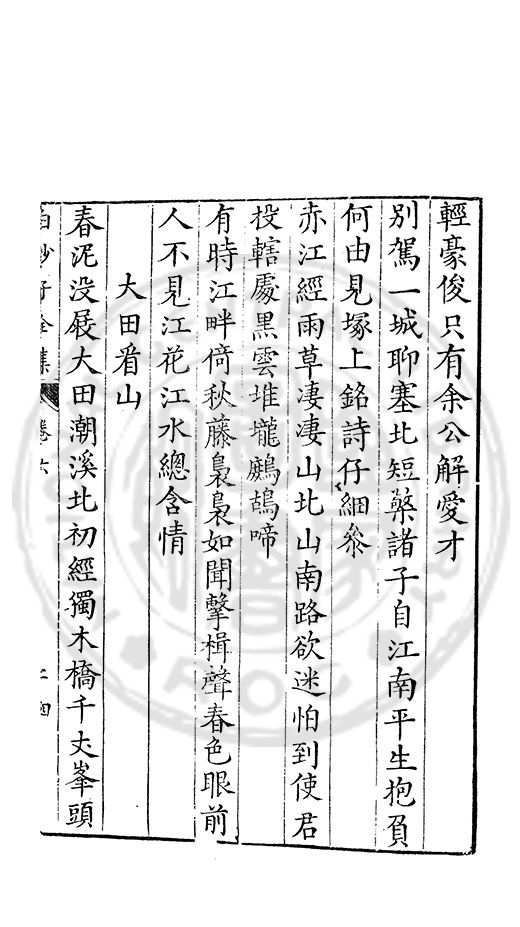 輕豪俊只有余公解愛才
別駕一城聊塞北短檠諸子自江南平生抱負
何由見塚上銘詩仔細叅
赤江經雨草凄凄山北山南路欲迷怕到使君
投轄處黒雲堆壠鷓鴣啼
有時江畔倚秋藤裊裊如聞擊楫聲春色眼前
人不見江花江水總含情
大田看山
春泥没屐大田潮溪北初經獨木橋千丈峯頭
全集
卷六